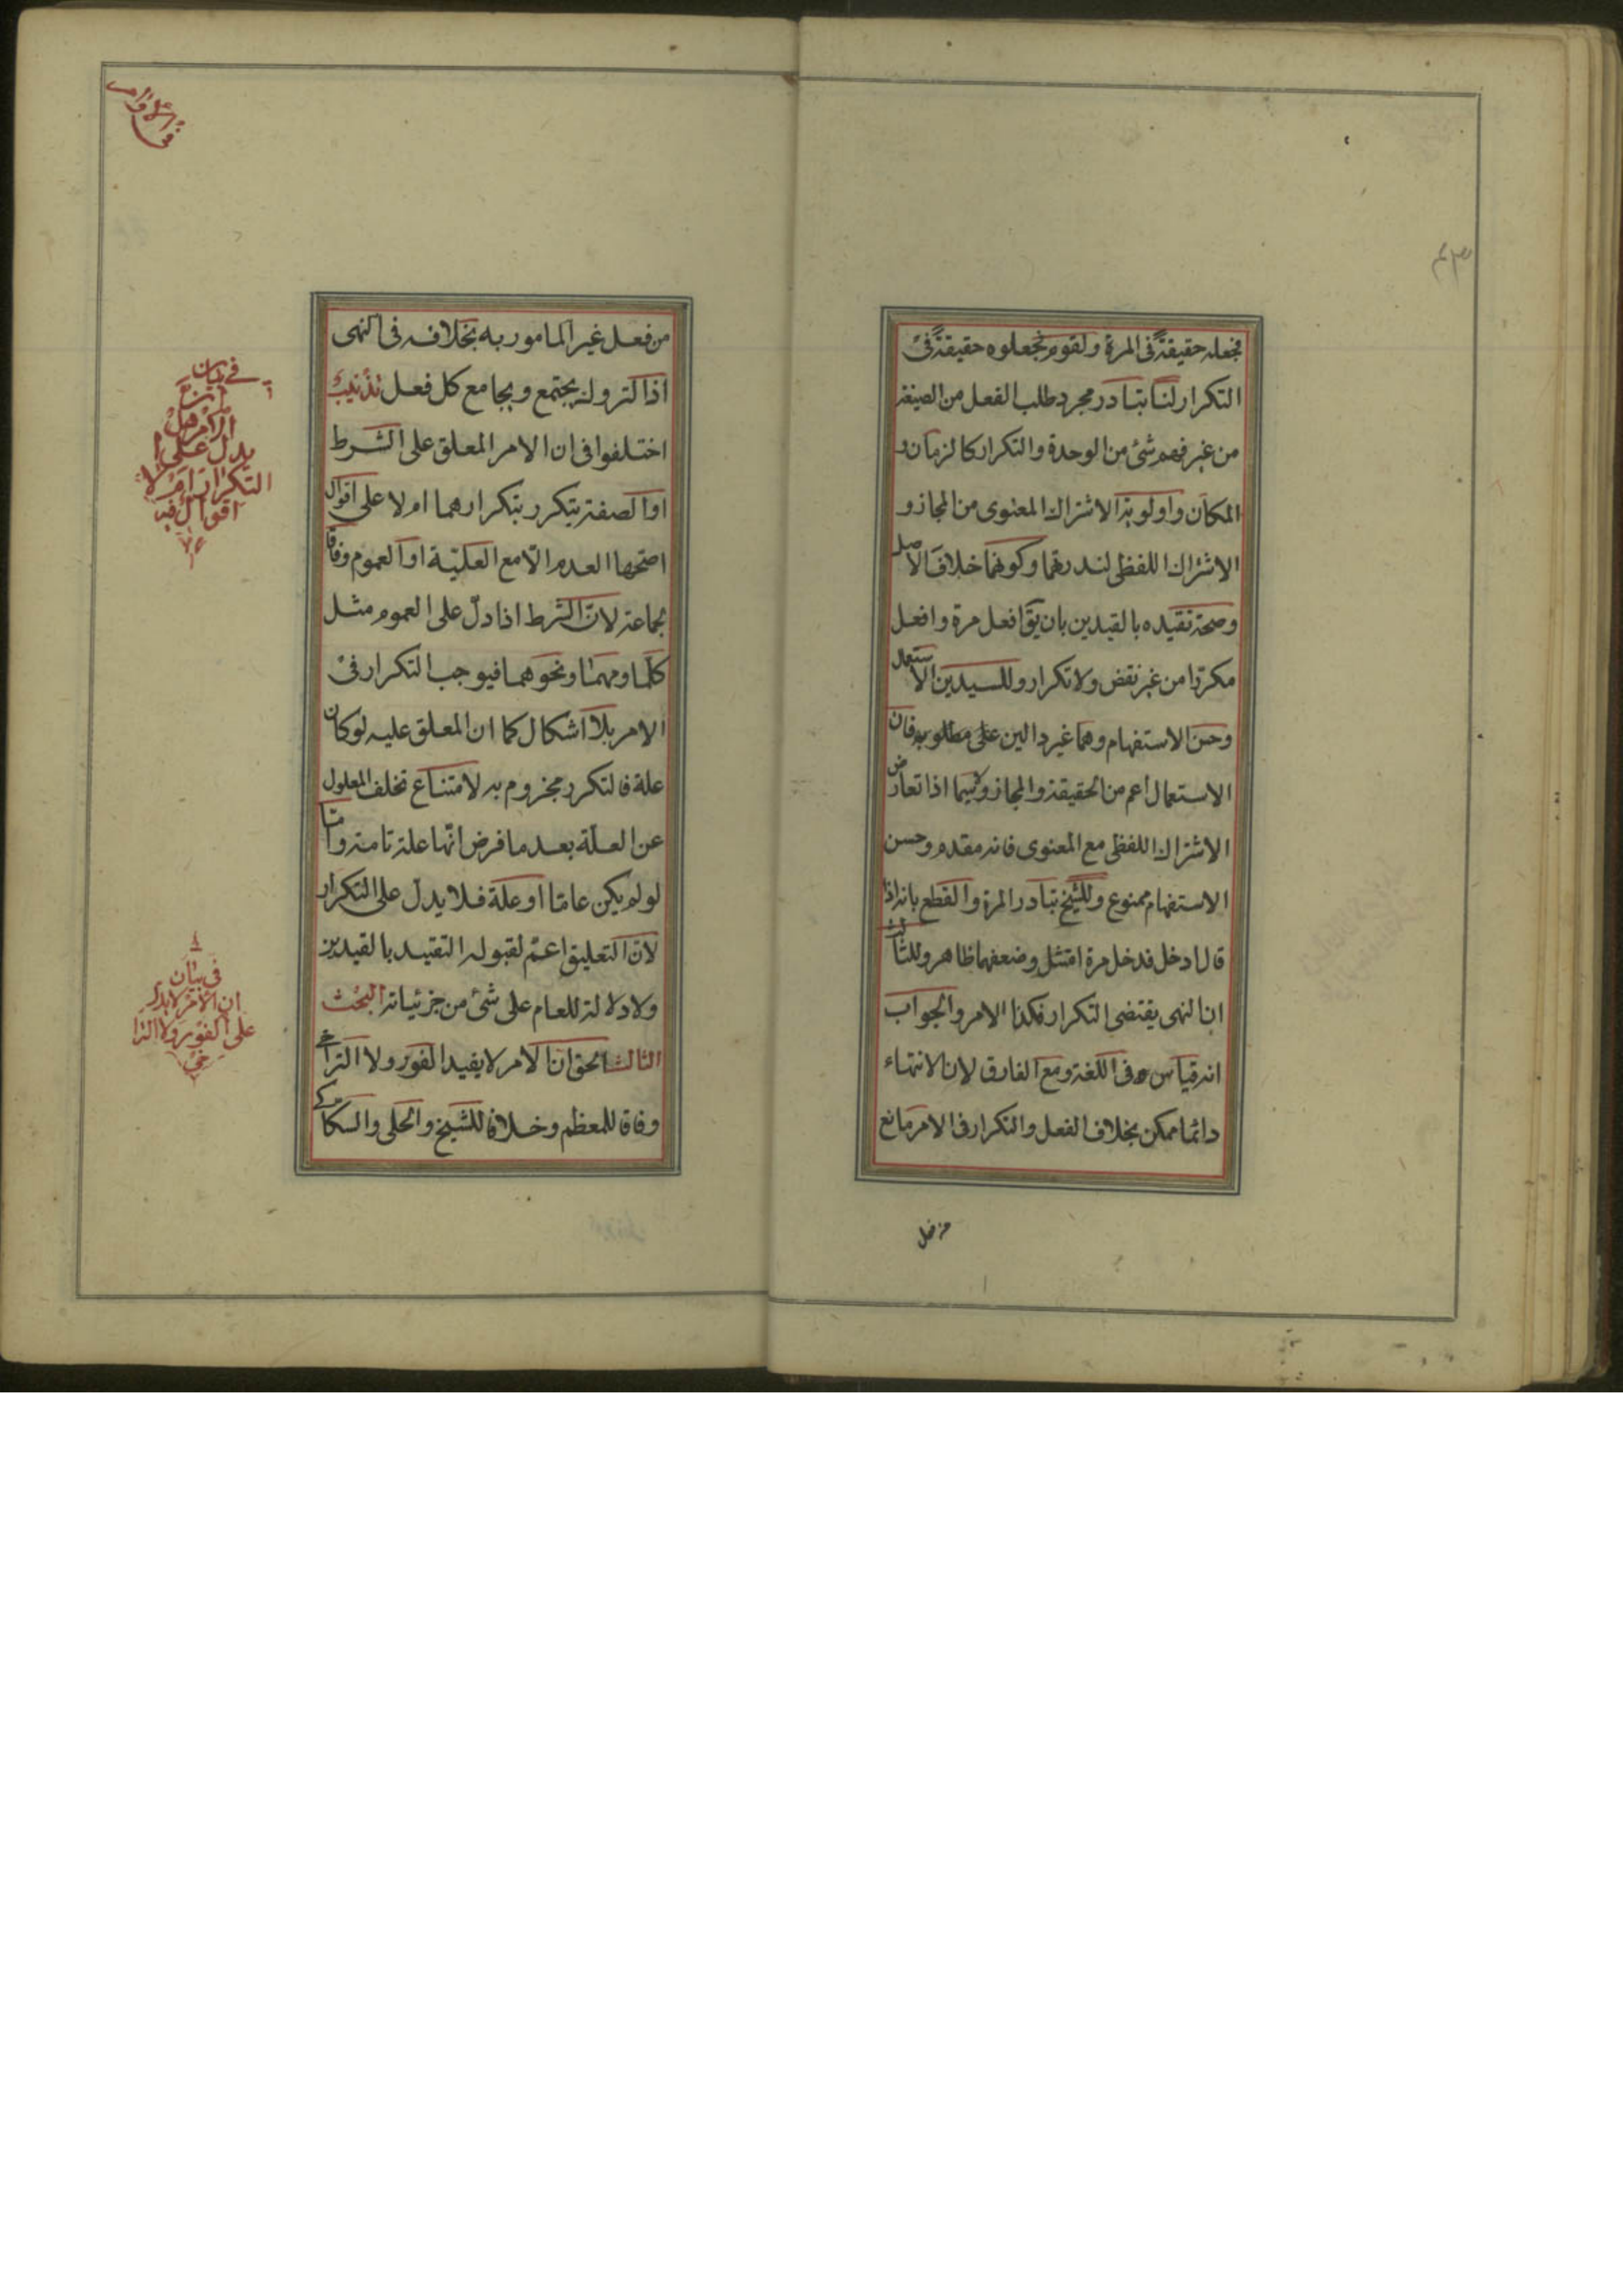 فجعله حقيقةً فى المرة ولقوم فجعلوه حقيقةً فى
التكرار لنا تبادر مجرد طلب الفعل من الصيغة
من غير فهم شئ من الوحدة والتكرار كالزمان و
المكان واولوية الاشتراك المعنوى من المجاز و
الاشتراك اللفظى لندرتهما وكونهما خلاف الاصل
وصحة تقيده بالقيدين بان يق افعل مرة وافعل
مكررا من غير نقض ولا تكرار وللسيدين الاستعمال
وحسن الاستفهام وهما غير دالين على مطلوبه فان
الاستعمال اعم من الحقيقة والمجاز وسيما اذا تعارض
الاشتراك اللفظى مع المعنوى فانه مقدم وحسن
الاستفهام ممنوع وللشيخ تبادر المرة والقطع بانه اذا
قال ادخل فدخل مرة امتثل وضعفهما ظاهر وللثالث
ان النهى يقتضى التكرار فكذا الامر والجواب
انه قياس فى اللغة ومع الفارق لان الانتهاء
دائما ممكن بخلاف الفعل والتكرار فى الامر مانع
من فعل
من فعل غير المامور به بخلافه فى النهى
اذ التروك يجتمع ويجامع كل فعل تذنيب
اختلفوا فى ان الامر المعلق على الشرط
او الصفة يتكرر بتكرارهما ام لا على اقوال
اصحها العدم الّا مع العلّية او العموم وفاقا
لجماعة لانّ الشرط اذا دلّ على العموم مثل
كلّما ومهما ونحوهما فيوجب التكرار فى
الامر بلا اشكال كما ان المعلق عليه لو كان
علة فالتكرر مجزوم به لامتناع تخلف المعلول
عن العلّة بعد ما فرض انّها علة تامة وامّا
لو لم يكن عامّا او علة فلا يدلّ على التكرار
لانّ التعليق اعمّ لقبوله التقييد بالقيدين
ولا دلالة للعام على شئ من جزئياته البحث
الثالث الحق ان الامر لا يفيد الفور ولا التراخى
وفاقا للمعظم وخلافا للشيخ والحلى والسكاكى
فى الاوامر
فى بيان
ان
الامر هل
يدل على
التكرار ام لا
اقوال فيه
فى بيان
ان الامر لا يدل
على الفور ولا الترا
خى